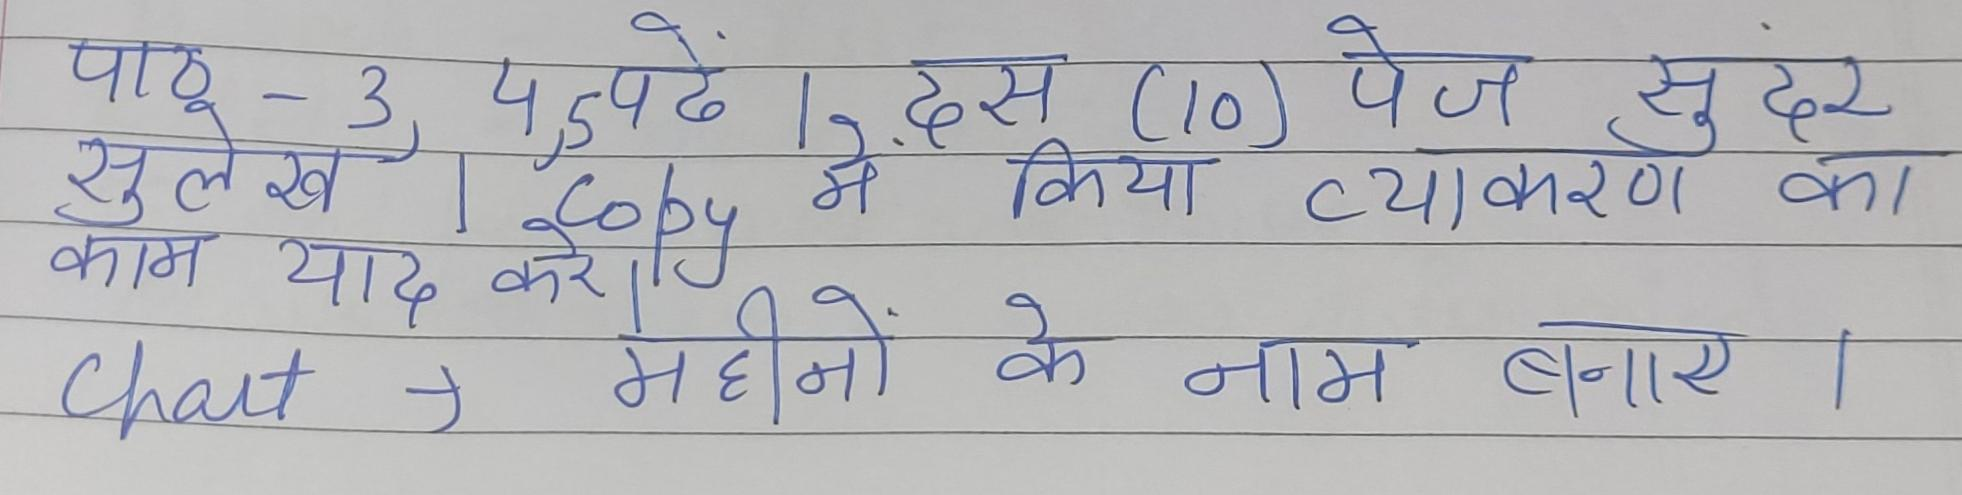 पाठ - 3, 4, 5 पढें । दस (10) पेज सुंदर
सुलेख । Copy में किया व्याकरण का
काम याद करे।
Chart → महीनों के नाम बनाए ।